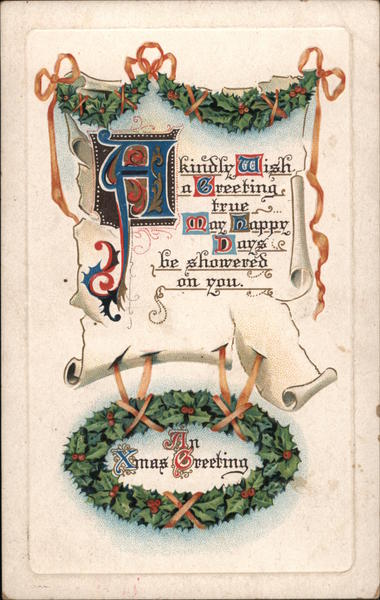 A kindly Wish
a Greeting
true
May Happy
Days
be showered
on you.
An
Xmas Greeting